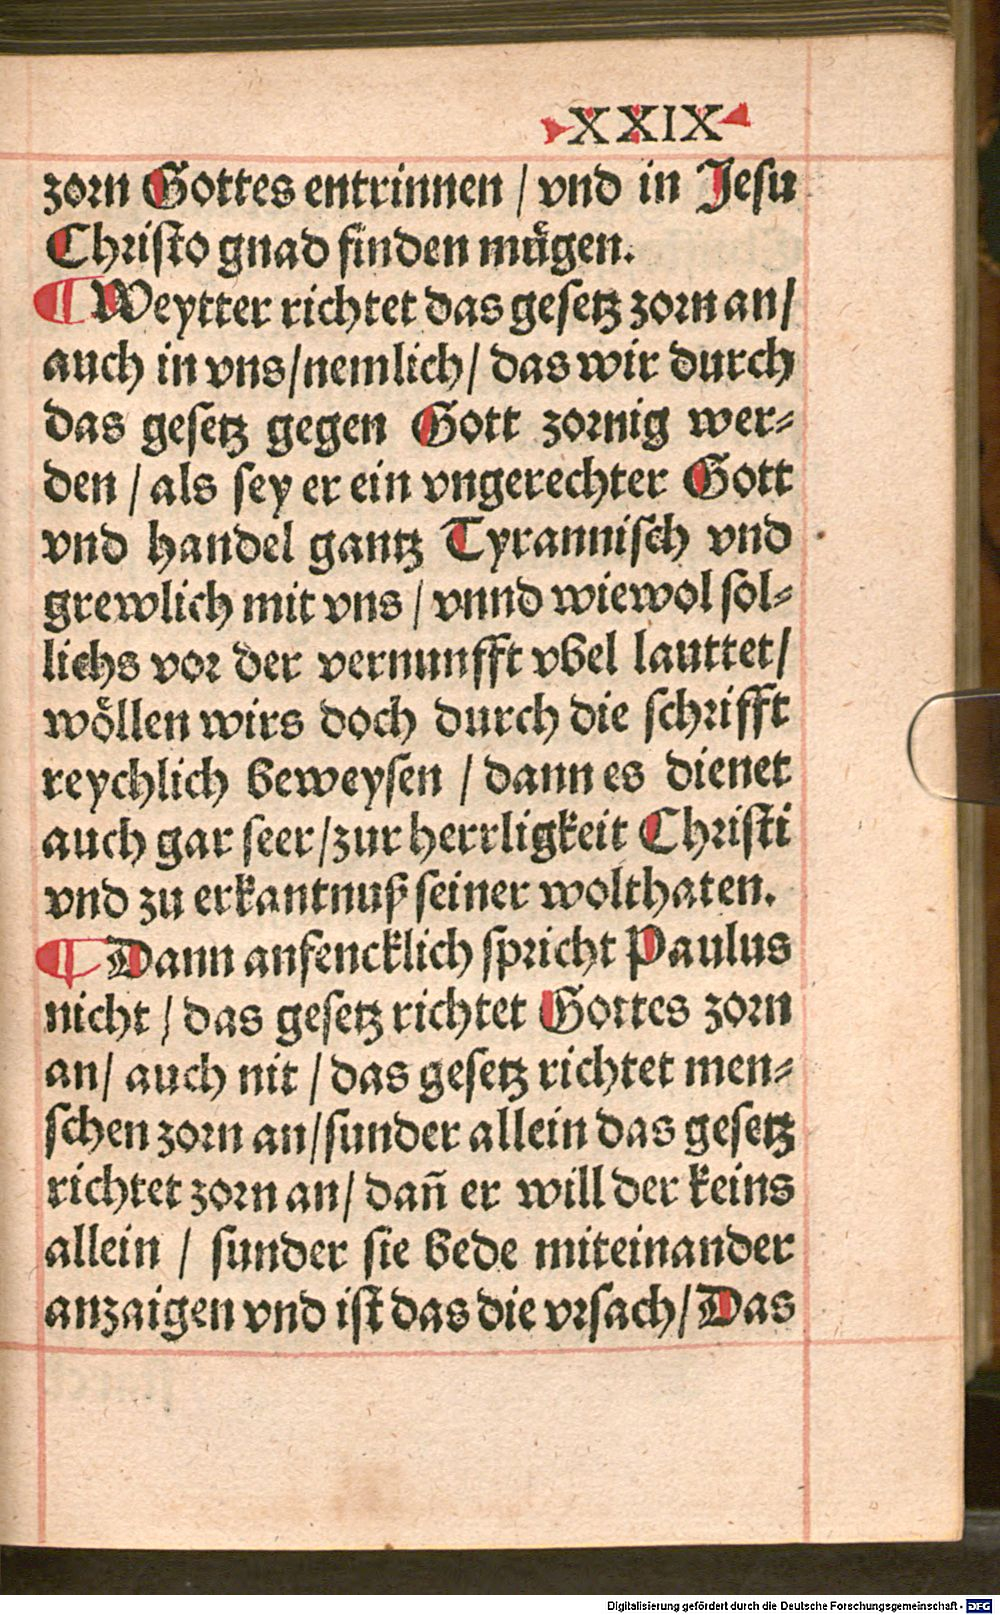 XXIX
zorn Gottes entrinnen / vnd in Jesu
Christo gnad finden mügen.
¶ Weytter richtet das gesetz zorn an/
auch in vns/nemlich/ das wir durch
das gesetz gegen Gott zornig wer⸗
den / als sey er ein vngerechter Gott
vnd handel gantz Tyrannisch vnd
grewlich mit vns / vnnd wiewol sol⸗
lichs vor der vernunfft vbel lauttet/
wöllen wirs doch durch die schrifft
reychlich beweysen / dann es dienet
auch gar seer/zur herrligkeit Christi
vnd zu erkantnuß seiner wolthaten.
¶ Dann anfencklich spricht Paulus
nicht / das gesetz richtet Gottes zorn
an/ auch nit / das gesetz richtet men⸗
schen zorn an/sunder allein das gesetz
richtet zorn an/ dan̄ er will der keins
allein / sunder sie bede miteinander
anzaigen vnd ist das die vrsach/ Das
Digitalisierung gefördert durch die Deutsche Forschungsgemeinschaft - DFG